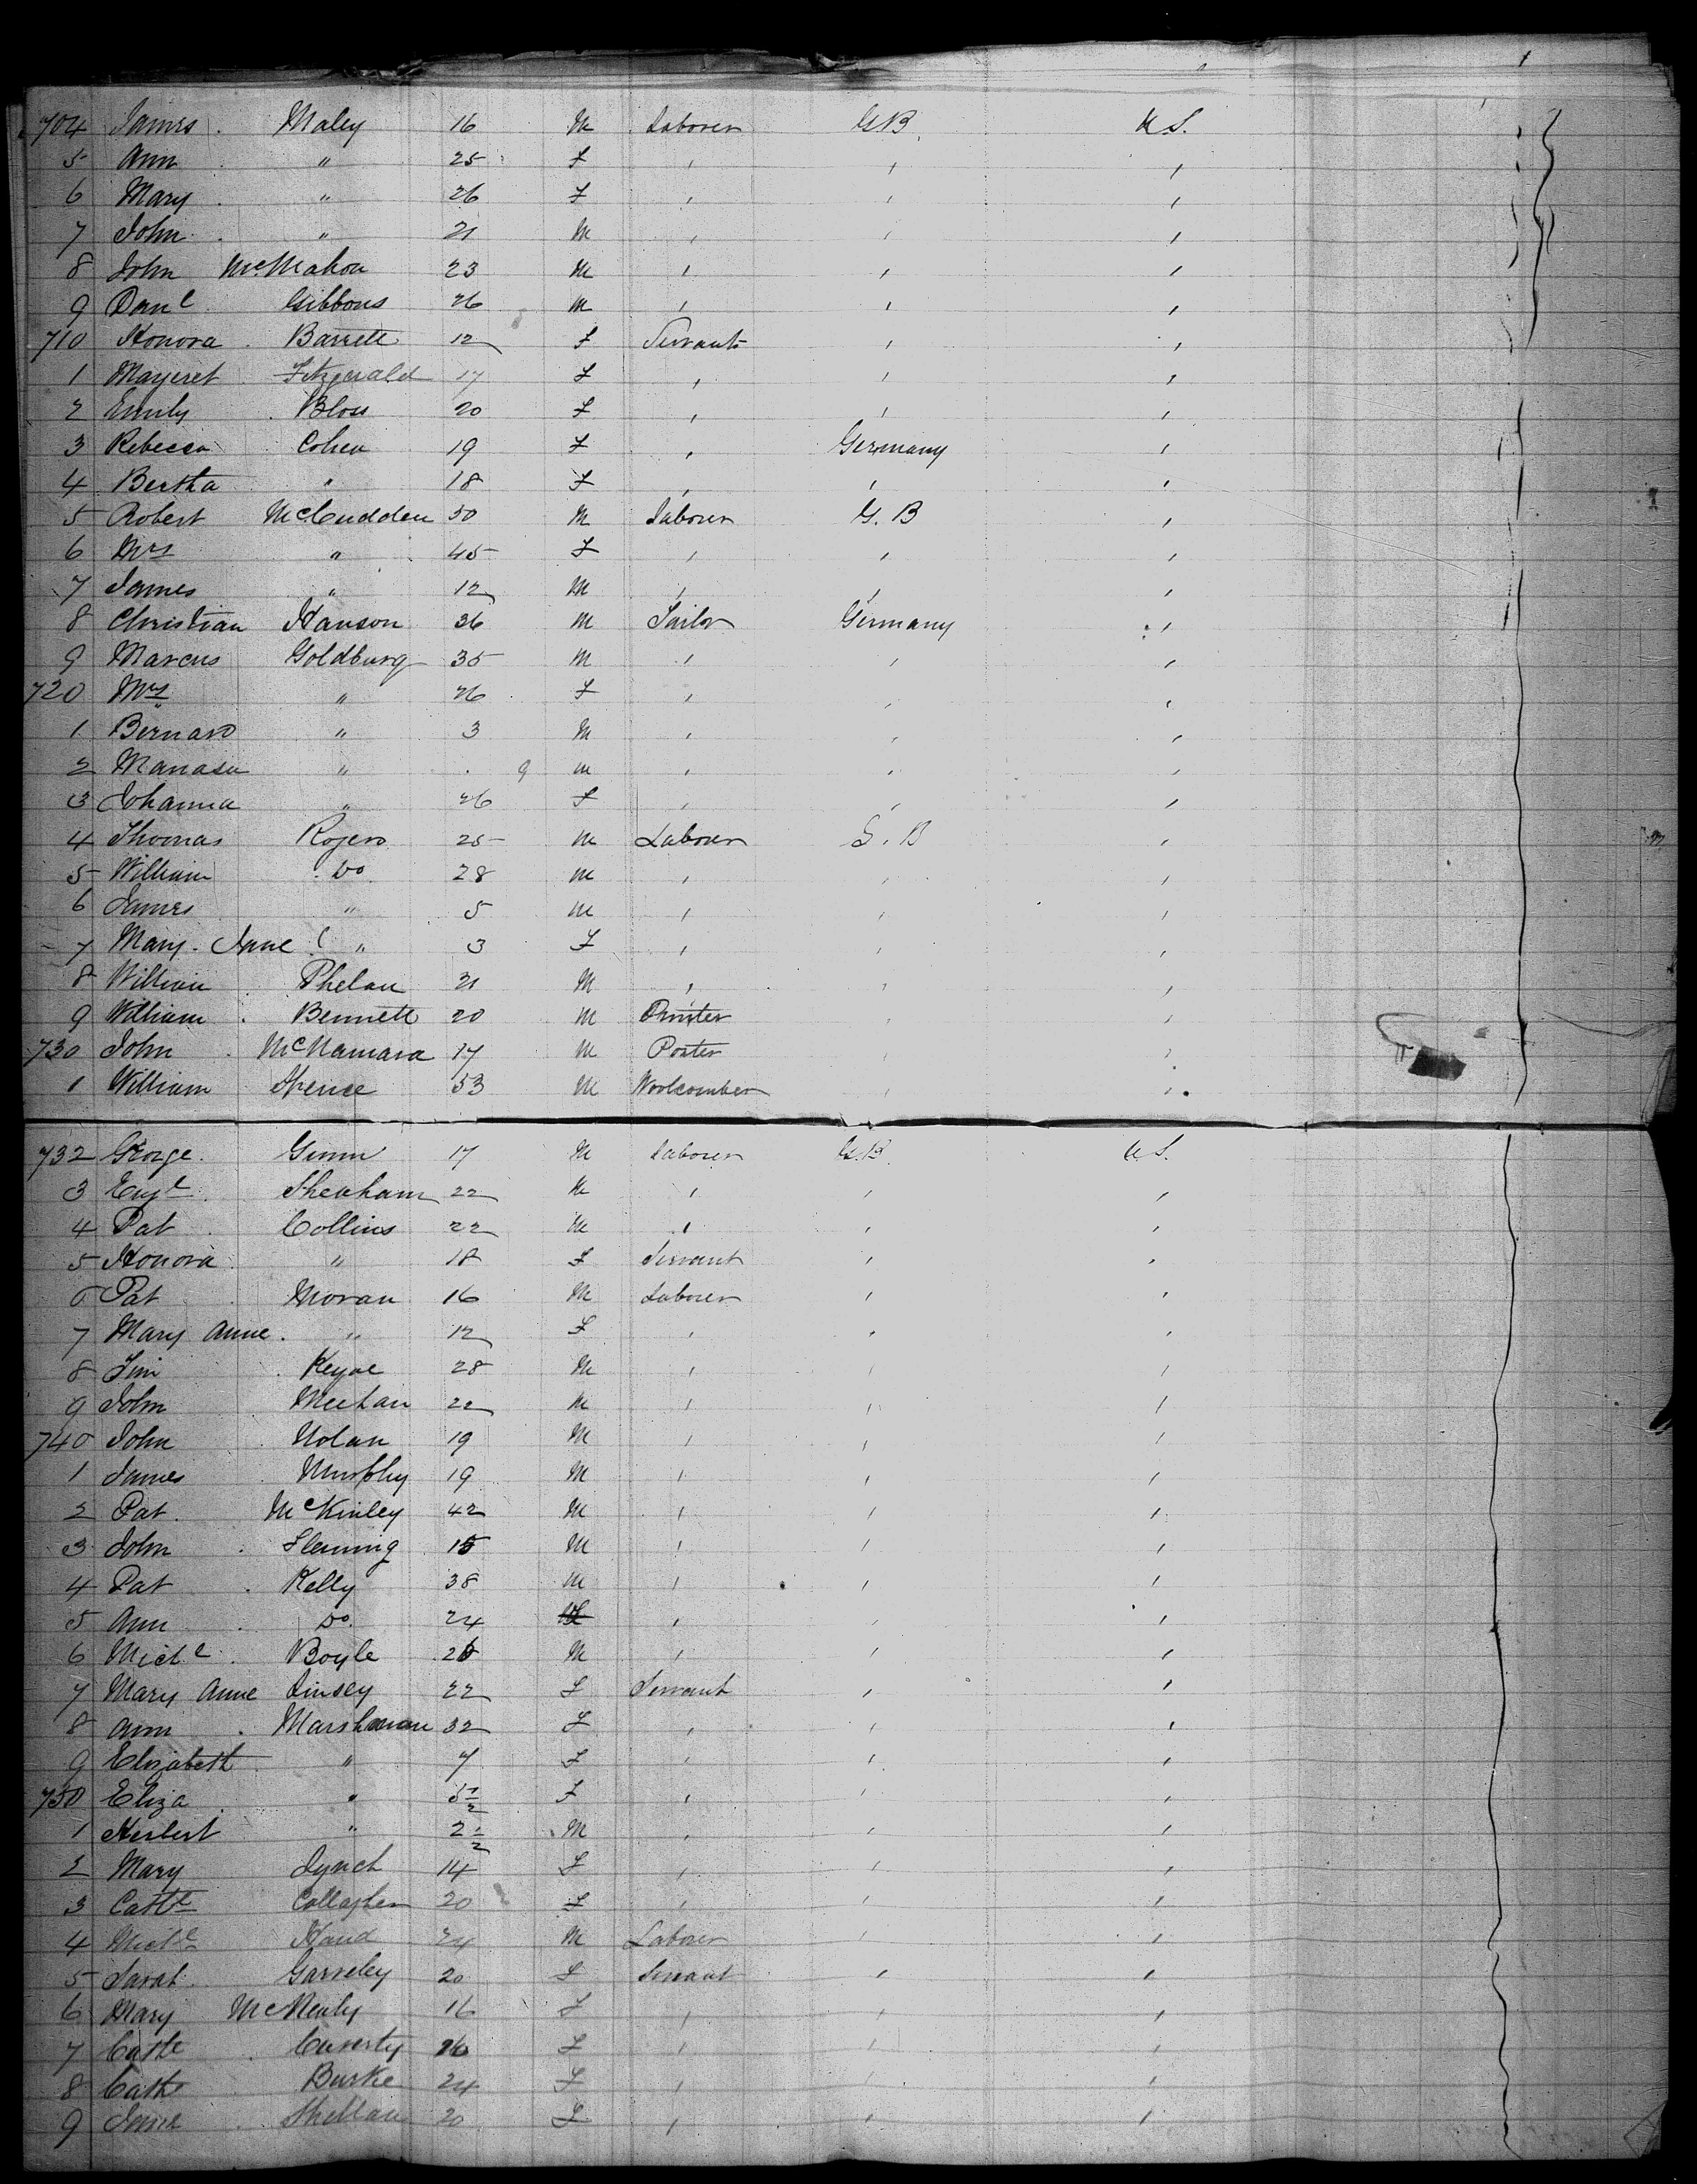 704 James Maley 16 M Laborer G.B U.S.
5 Ann " 25 F " " "
6 Mary " 26 F " " "
7 John " 21 M " " "
8 John McMahon 23 M " " "
9 Danl Gibbons 26 M " " "
710 Honora Barrett 12 F Servant " "
1 Margeret Fitzgerald 17 F " " "
2 Emily Bloss 20 F " " "
3 Rebecca Cohen 19 F " Germany "
4 Bertha " 18 F " " "
5 Robert McCudden 50 M Laborer G.B "
6 Mrs " 45 F " " "
7 James " 12 M " " "
8 Christian Hanson 36 M Germany "
9 Marcus Goldburg 35 M " " "
720 Mrs " 26 F " " "
1 Bernard " 3 M " " "
2 " 9 M " " "
3 Johanna " 26 F " " "
4 Thomas Rogers 25 M Laborer G.B "
5 William Do 28 M " " "
6 James " 5 M " " "
7 Mary Jane " 3 F " " "
8 William Phelan 21 M " " "
9 William Bennett 20 M Printer " "
730 John McNamara 17 M Porter " "
1 William Spence 53 M Woolcomber " "
732 George 17 M Laborer G.B. U.S.
3 22 M " " "
4 Pat Collins 22 M " " "
5 Honora " 18 F Servant " "
6 Pat Moran 16 M Laborer " "
7 Mary Anne " 12 F " " "
8 Tim Keyoe 28 M " " "
9 John Meehan 22 M " " "
740 John Nolan 19 M " " "
1 James Murphy 19 M " " "
2 Pat McKinley 42 M " " "
3 John Fleming 15 M " " "
4 Pat Kelly 38 M " " "
5 Ann Do. 24 F " " "
6 Michl Boyle 26 M " " "
7 Mary Anne Linsey 22 F Servant " "
8 Ann Marshman 32 F " " "
9 Elizabeth " 7 F " " "
750 Eliza " 5½ F " " "
1 Herbert " 2½ M " " "
2 Mary Lynch 14 F " " "
3 Cathe Callaghan 20 F " " "
4 Michl Hand 24 M Laborer " "
5 Sarah Garveley 20 F Servant " "
6 Mary 16 F " " "
7 Cathe Caverty F " " "
8 Cathe Burke 24 F " " "
9 20 F " " "